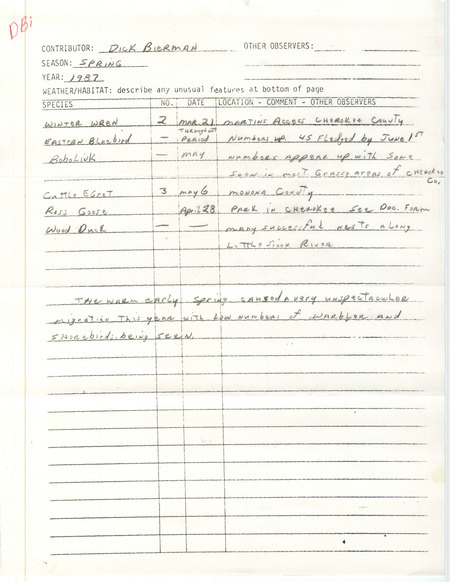 DBi
CONTRIBUTOR: DICK BIERMAN OTHER OBSERVERS:
SEASON: SPRING
YEAR: 1987
WEATHER/HABITAT: describe any unusual features at bottom of page
SPECIES NO. DATE LOCATION - COMMENT - OTHER OBSERVERS
WINTER WREN 2 MAR. 21 MARTINS ACCESS CHEROKEE COUNTY
EASTERN Bluebird — Throughout PERIOD Numbers up 45 Fledged by June 1st
BoboLink — May numbers appear up with some
seen in most Grassy areas of CHEROKEE Co.
Cattle Egret 3 may 6 MONONA COUNTY
Ross Goose April 28 PARK in CHEROKEE See Doc. Form
Wood Duck — — many successful nests along
LITTLE SIOUX RIVER
THE WARM early spring caused a very unspectacular
migration This year with low numbers of warbler and
SHOREbirds being seen.